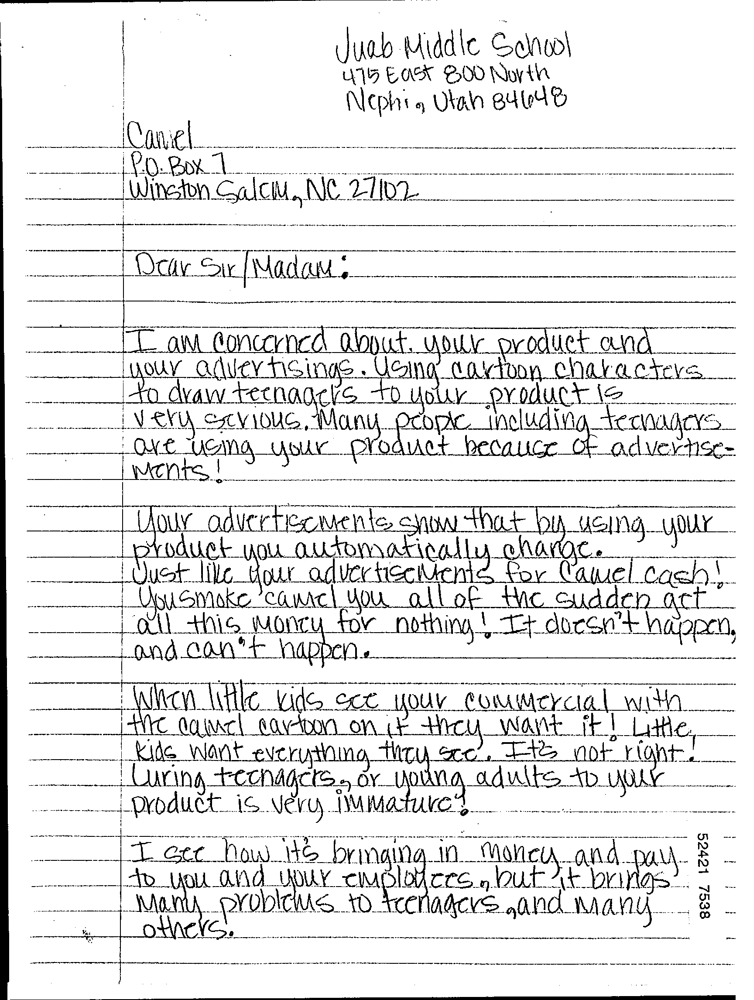 Juab Middle School
475 East 800 North
Nephi, Utah 84648
Camel
P.O. Box 7
Winston Salem, NC 27102
Dear Sir/Madam:
I am concerned about. your product and
your advertisings. Using cartoon characters
to draw teenagers to your product is
very serious. Many people including teenagers
are using your product because of advertise-
ments!
Your advertisements show that by using your
product you automatically change.
Just like your advertisements for Camel cash!
You smoke camel you all of the sudden get
all this money for nothing! It doesn't happen,
and can't happen.
When little kids see your commercial with
the camel cartoon on it they want it! Little
kids want everything they see. It's not right!
Luring teenagers, or young adults to your
product is very immature!
I see how it's bringing in money and pay
to you and your employees, but it brings
many problems to teenagers, and many
others.
52421 7538